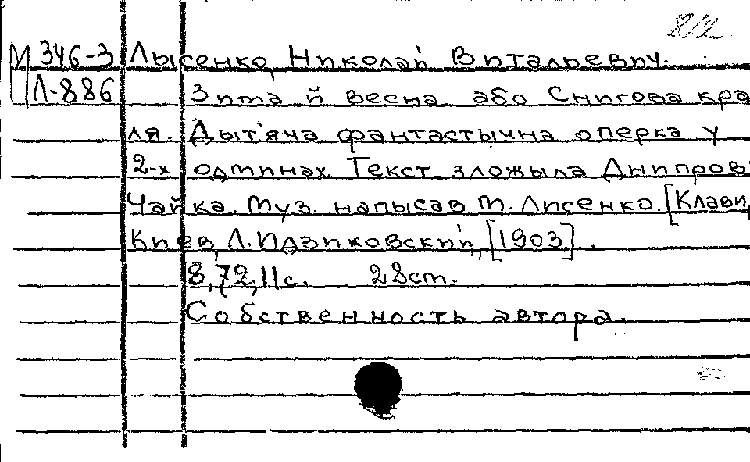 М 346-3 Лысенко, Николай Витальевич.
Л-886 Зима й весна або Снигова кра
ля. Дытяча фантастычна оперка у
2-х одминах. Текст зложыла Днипров
Чайка. Муз. напысав М. Лисенко. [Клави
Киев, Л. Идзиковский, [1903].
8,72,11с. 28см.
Собственность автора.